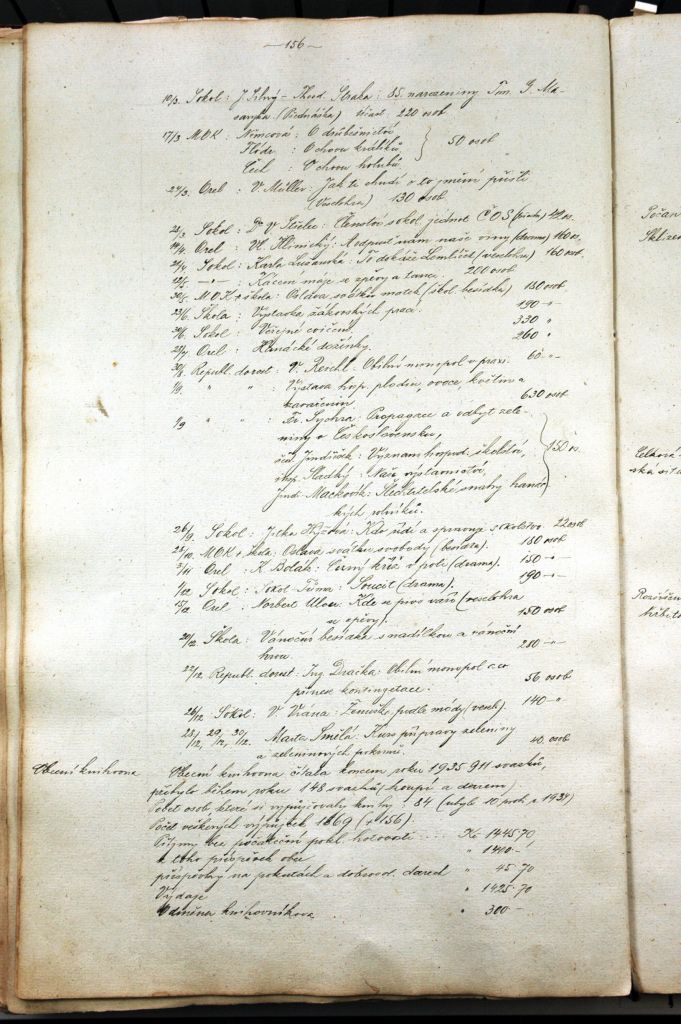 — 156 —
10/3. Sokol: J. Silný – Theod. Straka: 85. narozeniny Tm. G. Ma-
saryka (Přednáška) účast 220 osob
17/3 MOK: Němcová: O drůbežnictví,
: Ochova králíků, } 50 osob
Čech : Ochova holubů.
24/3. Orel: V. Müller: Jak ti chudí o to jmění přišli
(Veselohra) 130 osob
Sokol: Dr V. : Členstvo sokol. jednot ČOS
Orel: Vl. Hlinický: A odpusť nám naše viny (drama) 160 os.
Sokol: Karla Lužanská: To dokáže (veselohra) 160 osob
– " – : Kácení máje se zpěvy a tanci. 200 osob
MOK + škola: Oslava svátku matek (škol. besídka) 180 osob
23/6. Škola: Výstavka žákovských prací. 190 – " –
30/6. Sokol: Veřejné cvičení. 330 "
28/7 Orel: Hanácké dožínky. 260 "
30/8 Republ. dorost: V. Reichl: Obilní monopol v praxi. 60 – " –
1/9. " " : Výstava hosp. plodin, ovoce, květin a
zavařenin 630 osob
1/9 " " : Fr. Sychra: Propagace a odbyt zele-
niny v Československu,
Jindřich: Význam hospod. školství, } 150 os.
inž. Sladký: Naše výstavnictví,
Mackovík: Šlechtitelské snahy hanác-
kých rolníků.
26/9. Sokol: Jitka : Kdo řídí a spravuje sokolstvo 22 osob
28/10. MOK + škola: Oslava svátku svobody (besídka). 180 osob
3/11 Orel: K. Bolák: Černý kříž v poli (drama). 150 – " –
Sokol: Sokol-Tůma: Soucit (drama). 190 – " –
15/12 Orel: Norbert : Kde se pivo vaří (veselohra
se zpěvy). 150 osob
20/12 Škola: Vánoční besídka s nadílkou a vánoční
hrou. 280 – " –
22/12. Republ. dorost: Ing. Dračka: Obilní monopol a co
přinese kontingetace. 56 osob
26/12 Sokol: V. Vrána: Ženuška podle módy (vesel.). 140 – "
28/12, 29/12, 30/12. Marta Smělá: Kurs přípravy zeleniny
a zeleninových pokrmů. 40 osob
Obecní knihovna
Obecní knihovna čítala koncem roku 1935 911 svazků,
přibylo během roku 148 svazků (koupí a darem)
Počet osob, které si vypůjčovaly knihy: 84 (ubylo 10 proti r. 1934)
Počet veškerých výpůjček 1869 (+156).
Příjmy bez počáteční pokl. hotovosti .... Kč 1445·70
z toho příspěvek obce " 1400·–
příspěvky na pokutách a dobrovol. darech " 45·70
Výdaje " 1425·70
Odměna knihovníkova " 300·–
Počas
Sklize
Celková
ská sit
Rozvíšen
hřbito